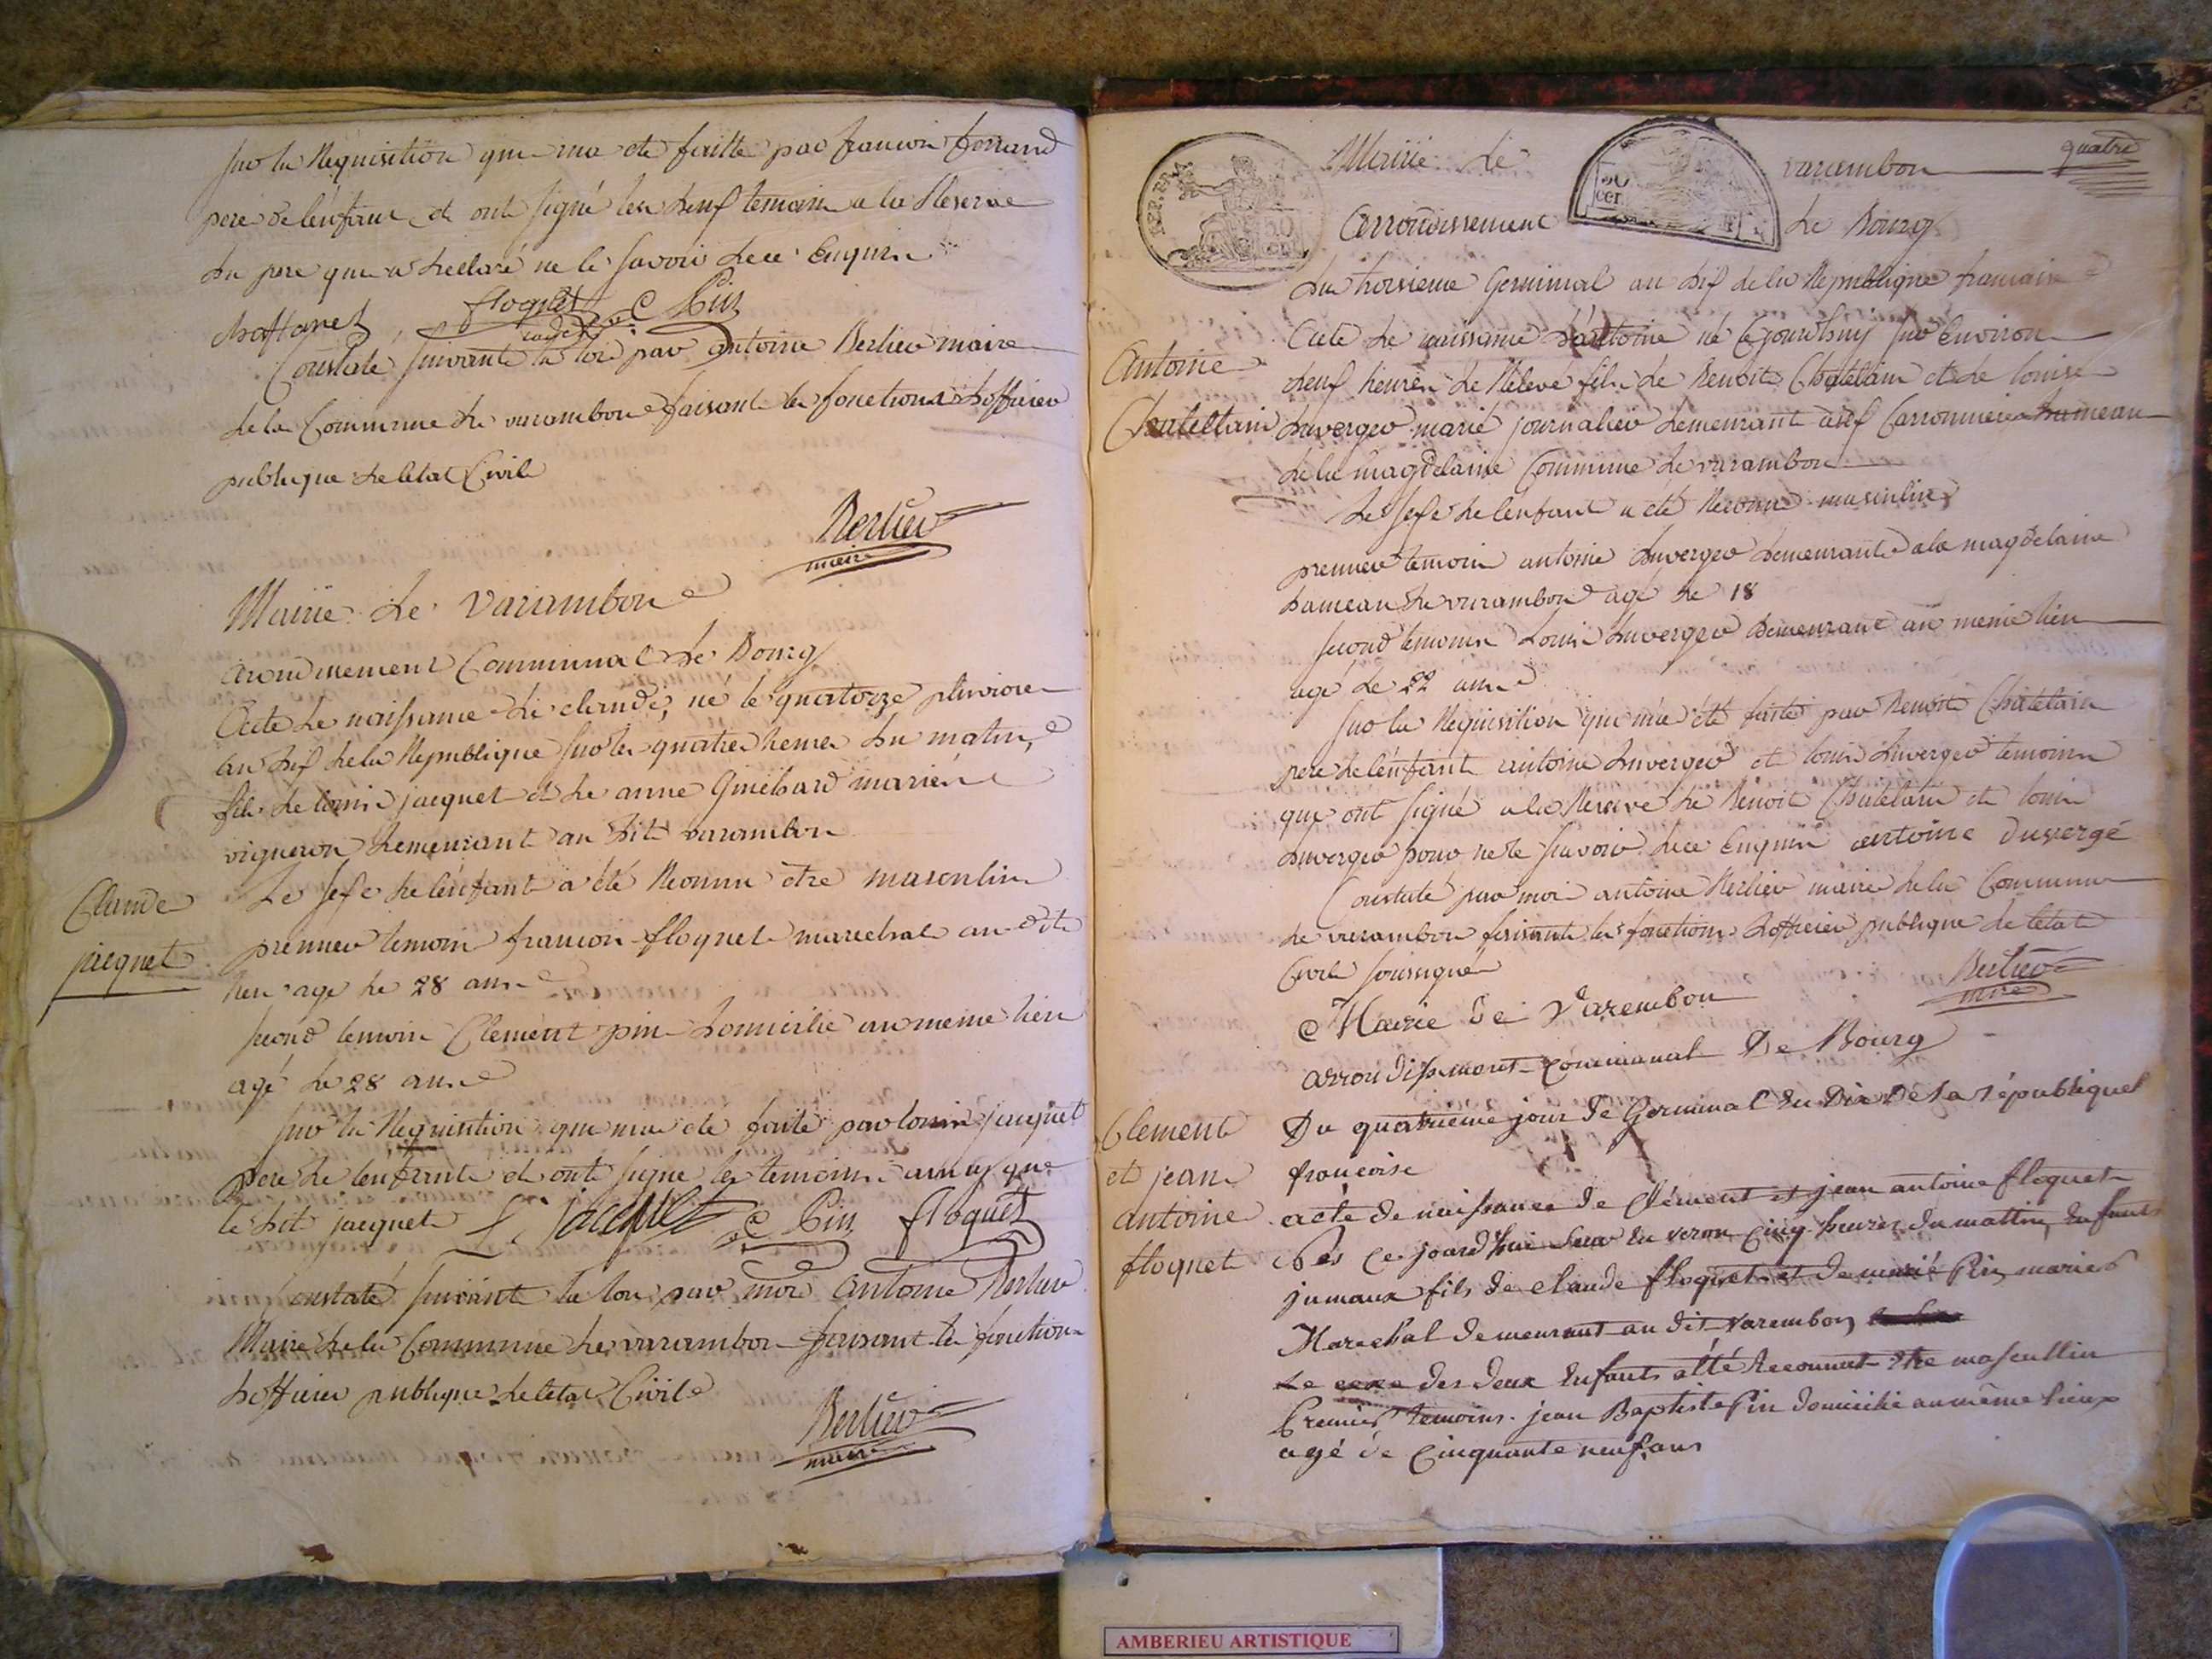 sur la Requisition qui ma eté faitte par francois ferrand
pere de lenfant et ont signé les deuf temoins a la Reserve
du pere qui a declaré ne le savoir de ce Enquis
floquet C Pin
cadet
Constaté suivant la loi par antoine Berlier maire
de la Commune de varambon faisant les fonctions dofficier
publique de letat Civil
Berlier
maire
Mairie de varambon
arondissement Communal de Bourg
Acte de naissance de claude, né le quatorze pluviose
an dif de la Republique sur les quatre heures du matin,
fils de louis jacquet et de anne mariés
vigneron demeurant au dit varambon
Claude
jacquet
Le sefe de lenfant a eté Reconnu etre masculin
premier temoin francois floquet marechal au dit
lieu age de 28 ans
second temoin Clement pin domicilié au meme lieu
agé de 28 ans
sur la Requisition qui ma eté faite par louis jacquet
pere de lenfant et ont signe les temoins ainsy que
le dit jacquet L jacquet C Pin floquet
constaté suivant la loi par moi antoine Berlier
Maire de la Commune de varambon faisant les fonctions
dofficier publique de letat Civil
Berlier
maire
quatre
Mairie de varambon
REP. FRA
50
cen.
Arrondissement de Bourg
du troisieme Germinal an dif de la Republique francaise
Acte de naissance dantoine né cejourdhuy sur Environ
deuf heures de Relevé fils de Benoit Chatelain et de louise
Antoine
Chatelain
duverger marié journalier demeurant aux Carronnieres hameau
de la magdelaine Commune de varambon
Le sefe de lenfant a eté Reconnu masculin
premier temoin antoine duverger demeurant a la magdelaine
hameau de varambon agé de 18
second temoin Louis duverger demeurant au meme lieu
agé de 22 ans
sur la Requisition qui ma eté faite par Benoit Chatelain
pere de lenfant antoine duverger et louis duverger temoins
qui ont signé a la Reserve de Benoit Chatelain et louis
duverger pour ne le savoir de ce Enquis antoine duvergé
Constaté par moi antoine Berlier maire de la Commune
de varambon faisant les fonctions dofficier publique de letat
Civil soussigné
Berlier
maire
Mairie de Varembon
arrondissement communal De Bourg
Clement
et jean
antoine
floquet
Du quatrieme jour de Germinal du Dix de la république
françoise
acte de naissance de Clément et jean antoine floquet
Nés ce jourd'hui sur en veron cinq heures du mattin, enfants
jumaux fils de claude floquet et de marie Pin mariés
Marechal demeurant au dit varembon
Le sexe des deux Enfants a été Reconnut etre masculin
Premier temoins. jean Baptiste Pin domicilié au même lieux
agé de Cinquante neuf ans
AMBERIEU ARTISTIQUE